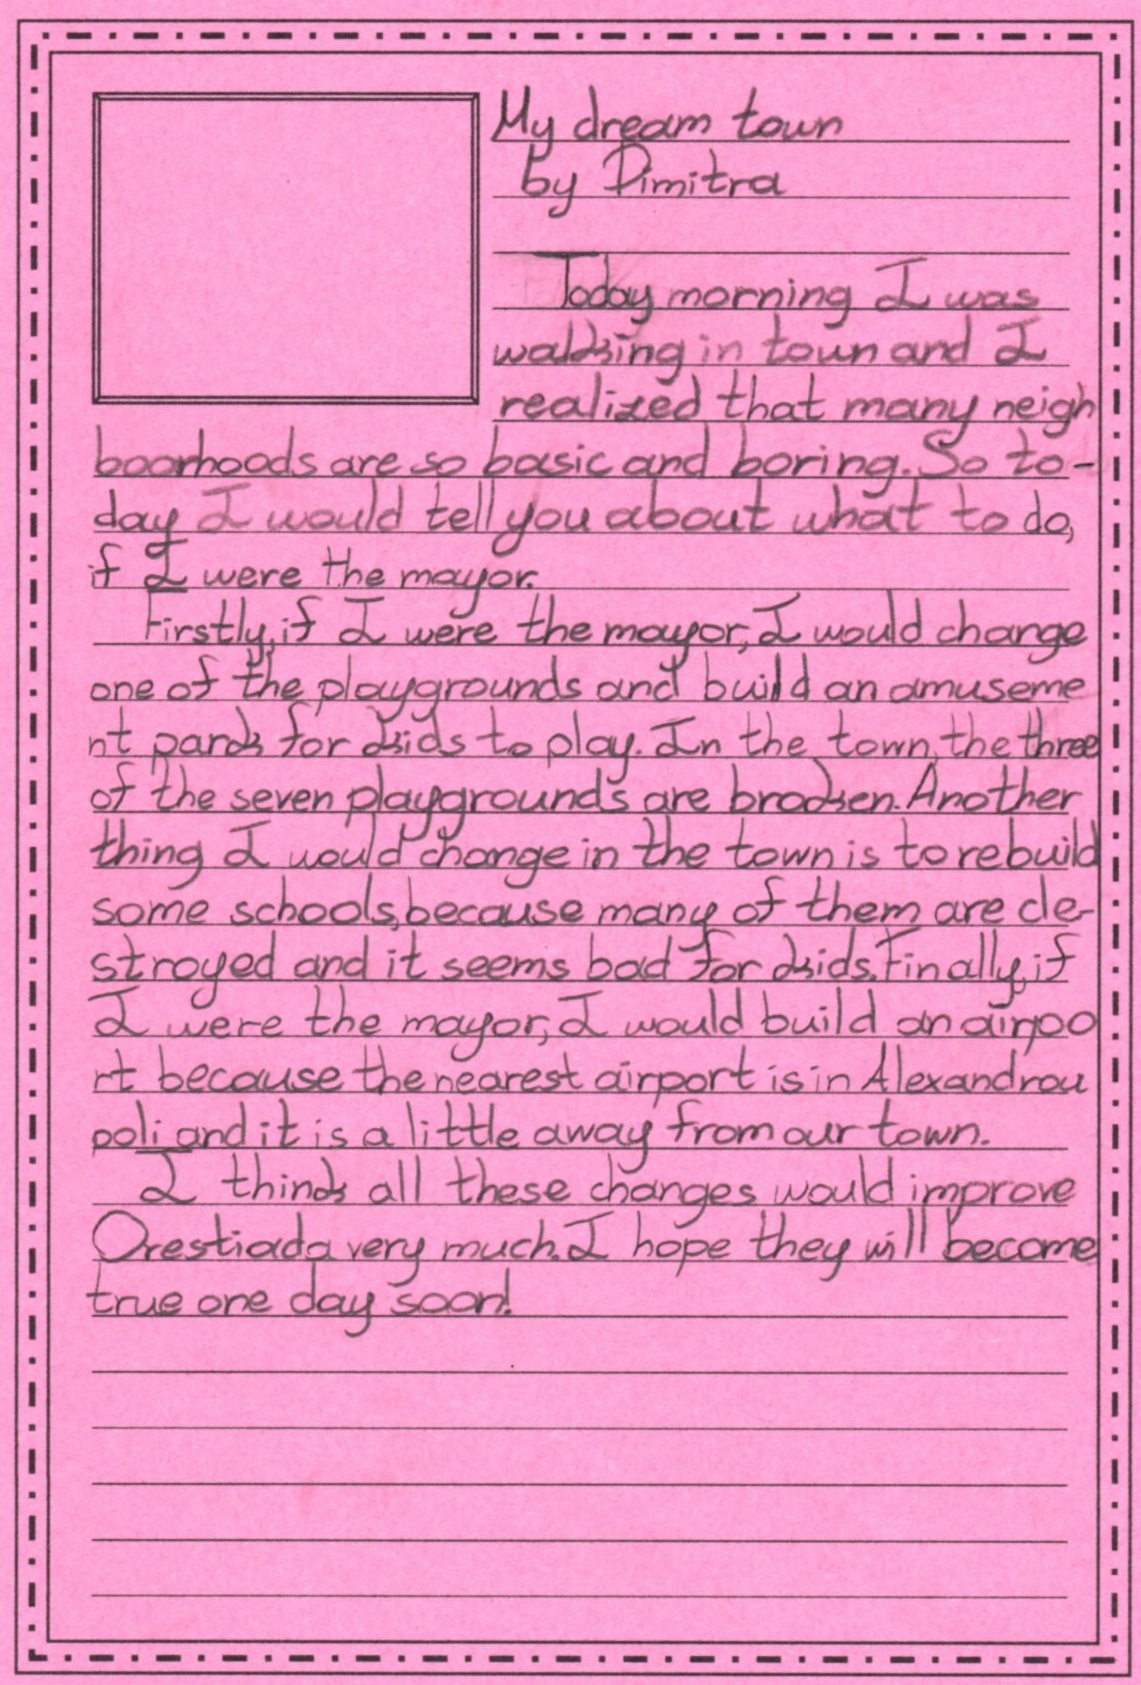 My dream town
by Dimitra
Today morning I was
walking in town and I
realized that many neigh
boorhoods are so basic and boring. So to-
day I would tell you about what to do,
if I were the mayor.
Firstly, if I were the mayor, I would change
one of the playgrounds and build an amuseme
nt park for kids to play. In the town, the three
of the seven playgrounds are broken. Another
thing I would change in the town is to rebuild
some schools, because many of them are de-
stroyed and it seems bad for kids. Finally, if
I were the mayor, I would build an airpo
rt because the nearest airport is in Alexandrou
poli and it is a little away from our town.
I think all these changes would improve
Orestiada very much. I hope they will become
true one day soon!